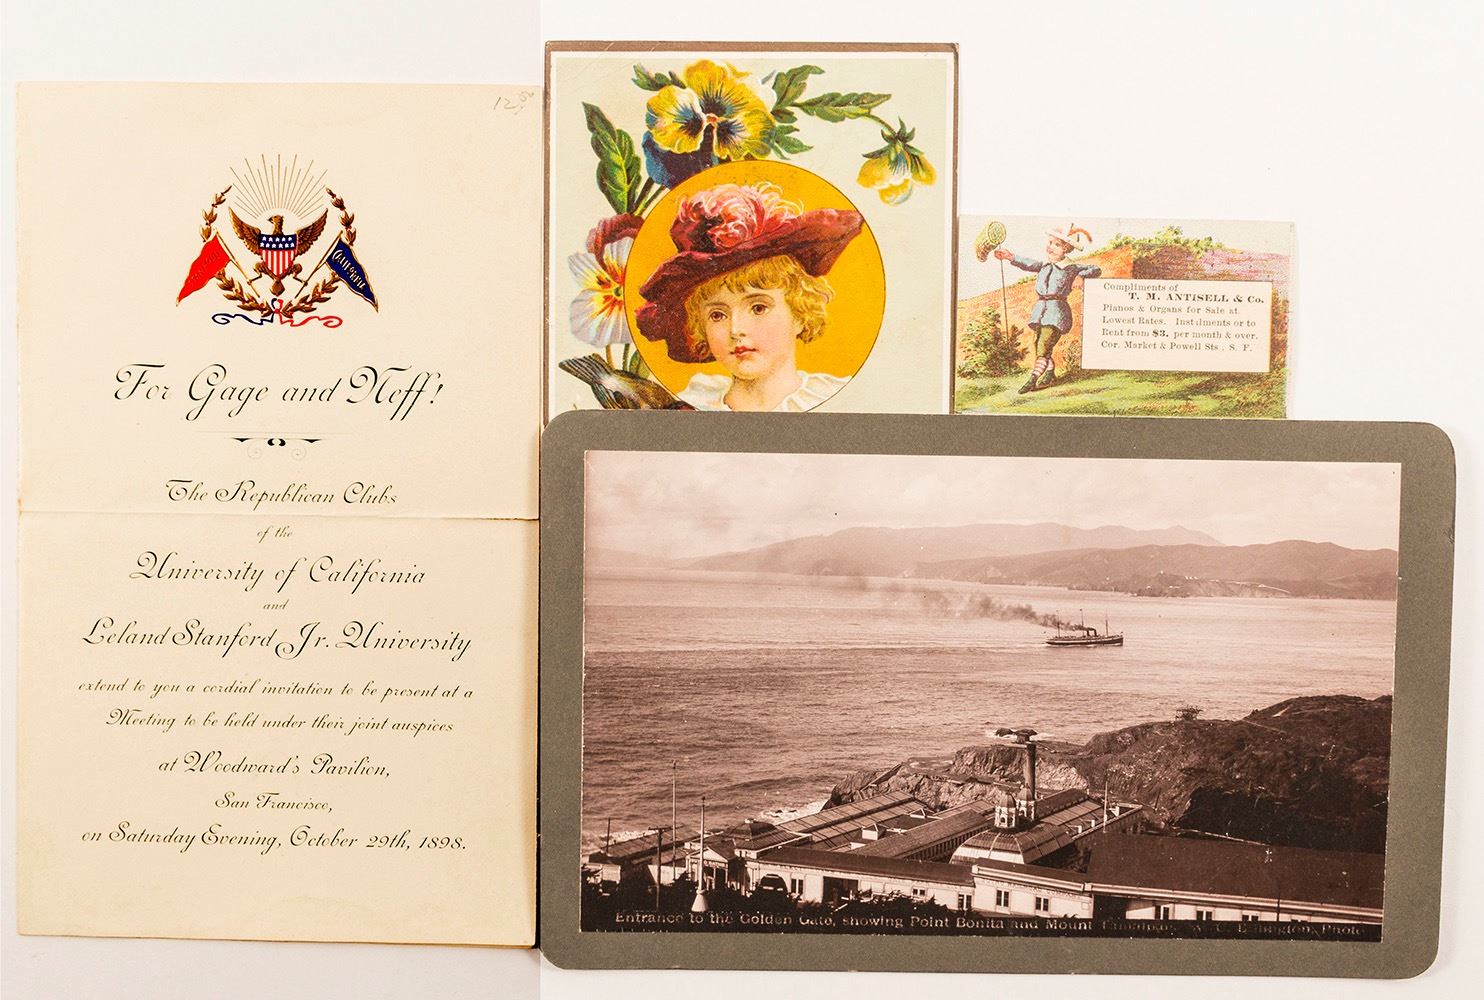 12.00
CALIFORNIA
For Gage and Neff!
The Republican Clubs
of the
University of California
and
Leland Stanford Jr. University
extend to you a cordial invitation to be present at a
Meeting to be held under their joint auspices
at Woodward's Pavilion,
San Francisco,
on Saturday Evening, October 29th, 1898.
Compliments of
T. M. ANTISELL & Co.
Pianos & Organs for Sale at
Lowest Rates. Instilments or to
Rent from $3. per month & over.
Cor. Market & Powell Sts., S. F.
Entrance to the Golden Gate, showing Point Bonita and Mount Tamalpais. W. C. Billington, Photo